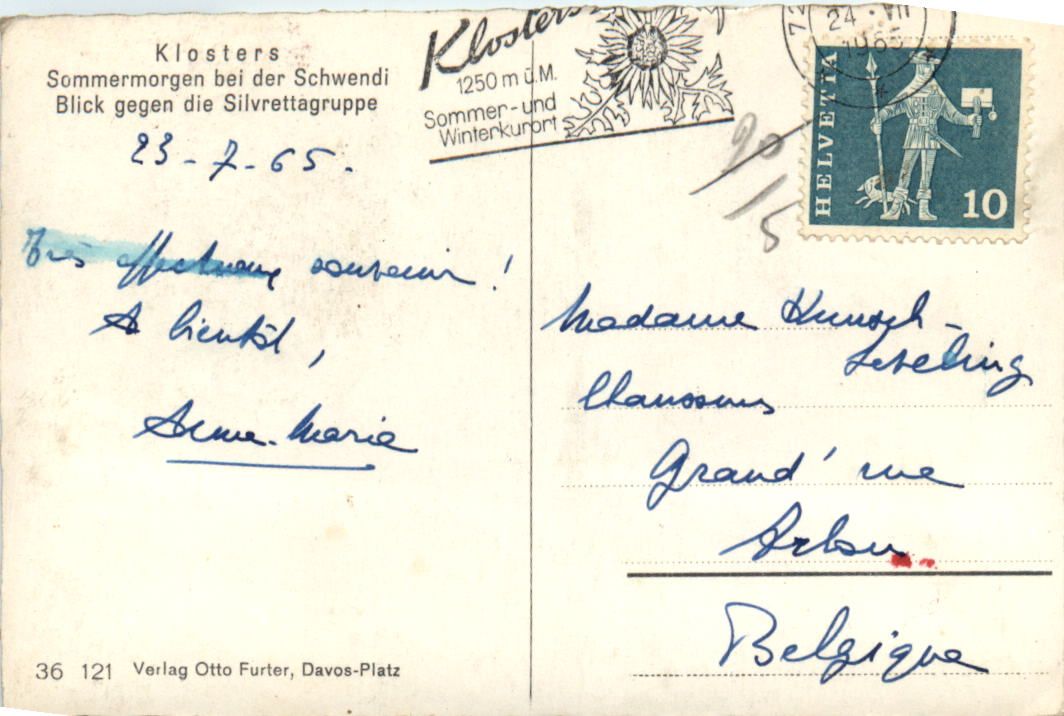 Klosters
Sommermorgen bei der Schwendi
Blick gegen die Silvrettagruppe
23-7-65.
Très affectueux souvenir !
A bientôt,
Anne-Marie
36 121 Verlag Otto Furter, Davos-Platz
Klosters
1250 m ü.M.
Sommer- und
Winterkurort
24.VII
1965
HELVETIA
10
90
15
Madame Kunsch-
Leveling
Chaussures
Grand'rue
Arlon
Belgique